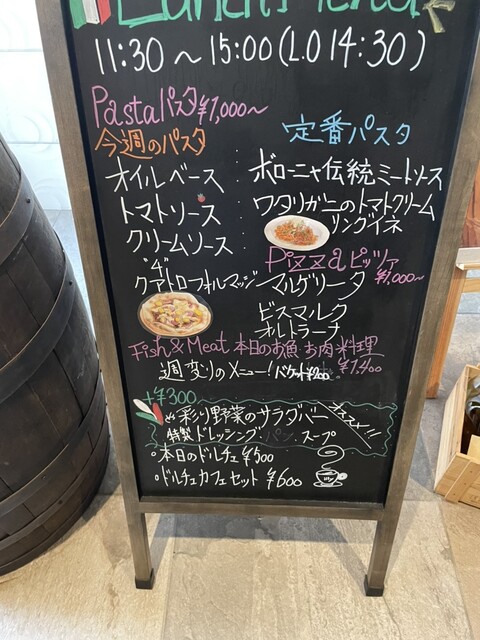 Lunch Menu
11:30～15:00(L.O 14:30)
Pasta パスタ ¥1,000～
今週のパスタ
オイルベース
トマトソース
クリームソース
定番パスタ
ボローニャ伝統ミートソース
ワタリガニのトマトクリーム
リングイネ
Pizza ピッツァ
¥1,000～
"4"
クアトロフォルマッジ
マルゲリータ
ビスマルク
オルトラーナ
Fish & Meat 本日のお魚 お肉 料理
¥1,400
週変りのメニュー!バケット¥200
+¥300
彩り野菜のサラダバー
特製ドレッシング・パン・スープ
オススメ!!
・本日のドルチェ ¥300
・ドルチェカフェセット ¥600